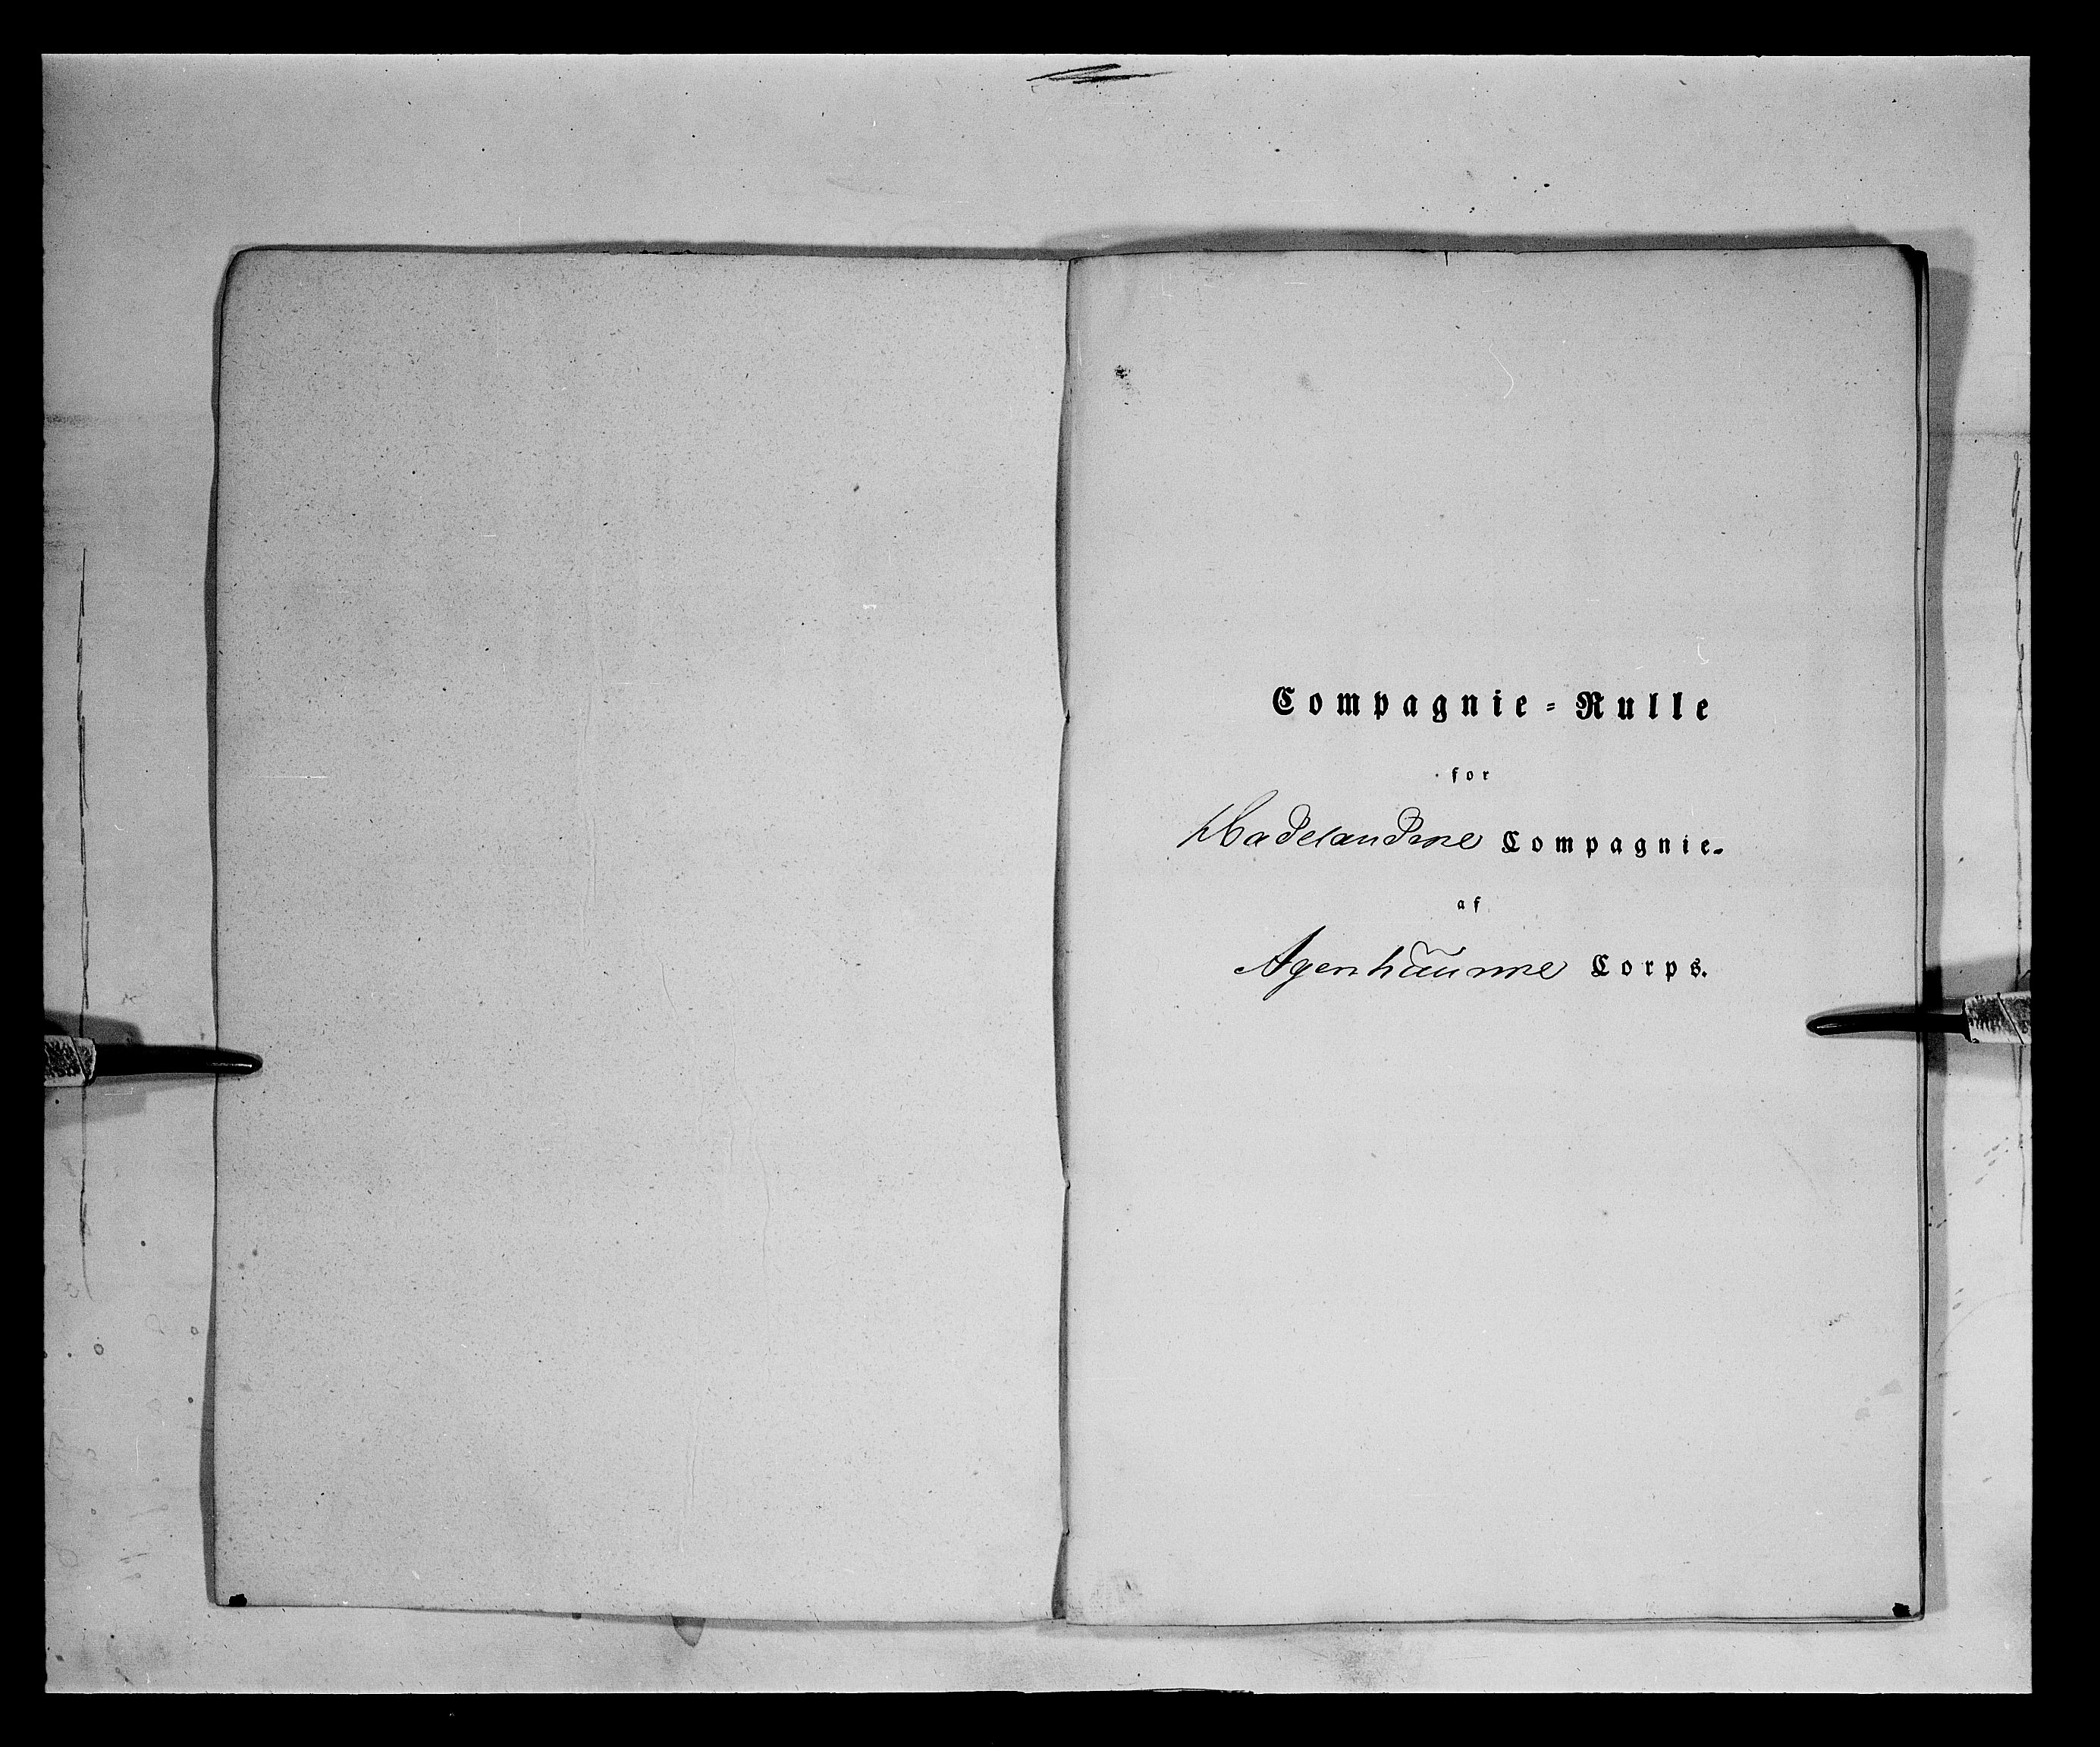 Compagnie-Rulle
for
Hadelandske Compagnie-
af
Agerhuusiske Corps.